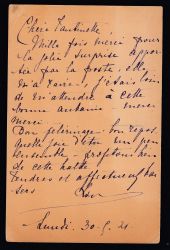 Chère Tantinette,
Mille fois merci pour
la jolie surprise appor
tée par la poste. Elle
m'a ravie, j'étais loin
de m'attendre à cette
bonne aubaine. merci
merci
Bon pèlerinage, bon repos.
Quelle joie d'être un peu
ensemble, profitons bien
de cette halte
Tendres et affectueux bai
sers
Lundi. 30-5-21